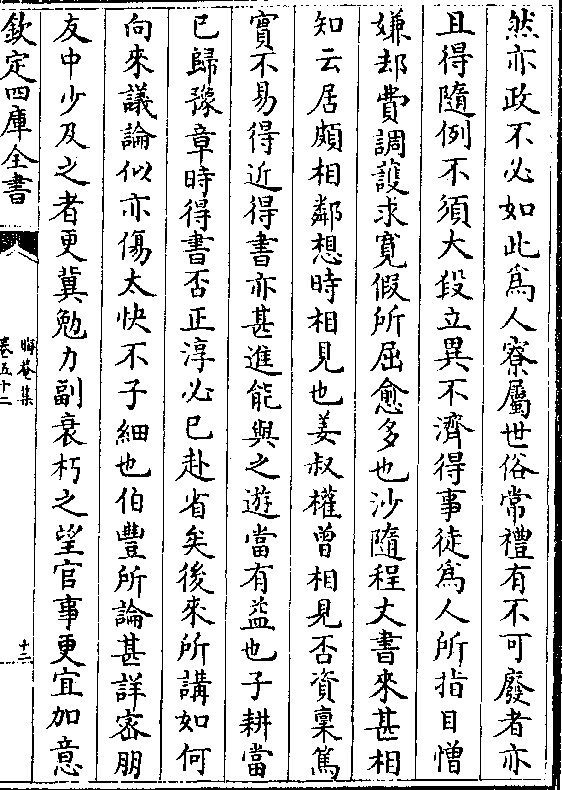 然亦政不必如此為人寮屬世俗常禮有不可廢者亦
且得隨例不須大段立異不濟得事徒為人所指目憎
嫌却費調護求寛假所屈愈多也沙隨程丈書來甚相
知云居頗相鄰想時相見也姜叔權曽相見否資稟篤
實不易得近得書亦甚進能與之遊當有益也子耕當
已歸豫章時得書否正淳必已赴省矣後來所講如何
向來議論似亦傷太快不子細也伯豐所論甚詳宻朋
友中少及之者更冀勉力副衰朽之望官事更宜加意
欽定四庫全書
晦菴集
卷五十二
十二